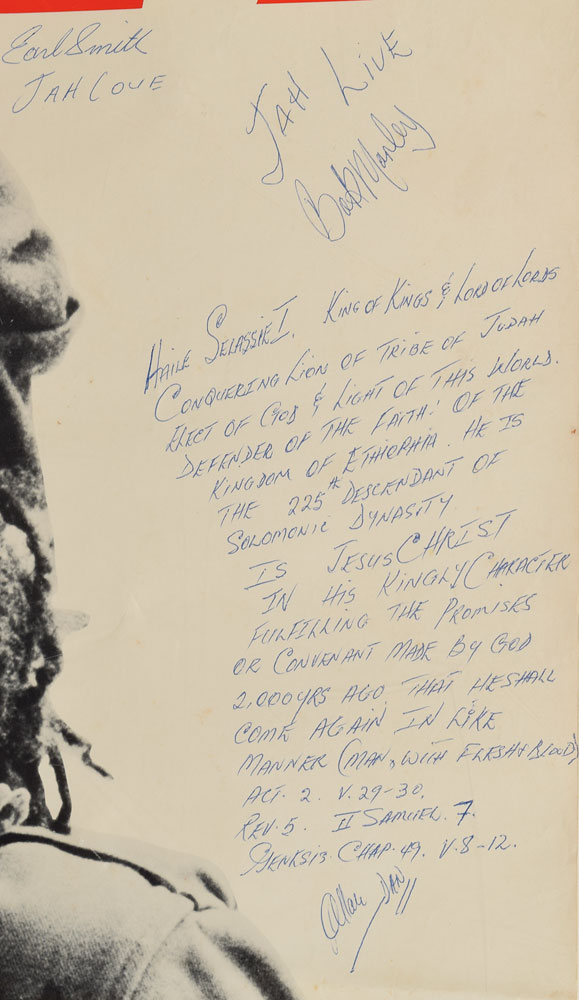 Earl Smith
JAH LOVE
JAH LIVE
Bob Marley
HAILE SELASSIE I. KING OF KINGS & LORD OF LORDS
CONQUERING LION OF TRIBE OF JUDAH
ELECT OF GOD & LIGHT OF THIS WORLD.
DEFENDER OF THE FAITH: OF THE
KINGDOM OF ETHIOPHIA. HE IS
THE 225th DESCENDANT OF
SOLOMONIC DYNASITY
IS JESUS CHRIST
IN HIS KINGLY CHARACTER
FULFILLING THE PROMISES
OR CONVENANT MADE BY GOD
2,000 YRS AGO, THAT HE SHALL
COME AGAIN IN LIKE
MANNER (MAN, WITH FLESH & BLOOD)
ACT. 2. V. 29-30.
REV. 5. II SAMUEL. 7.
GENESIS CHAP. 49. V. 8-12.